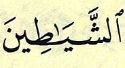 ٱلشَّيَاطِينَ